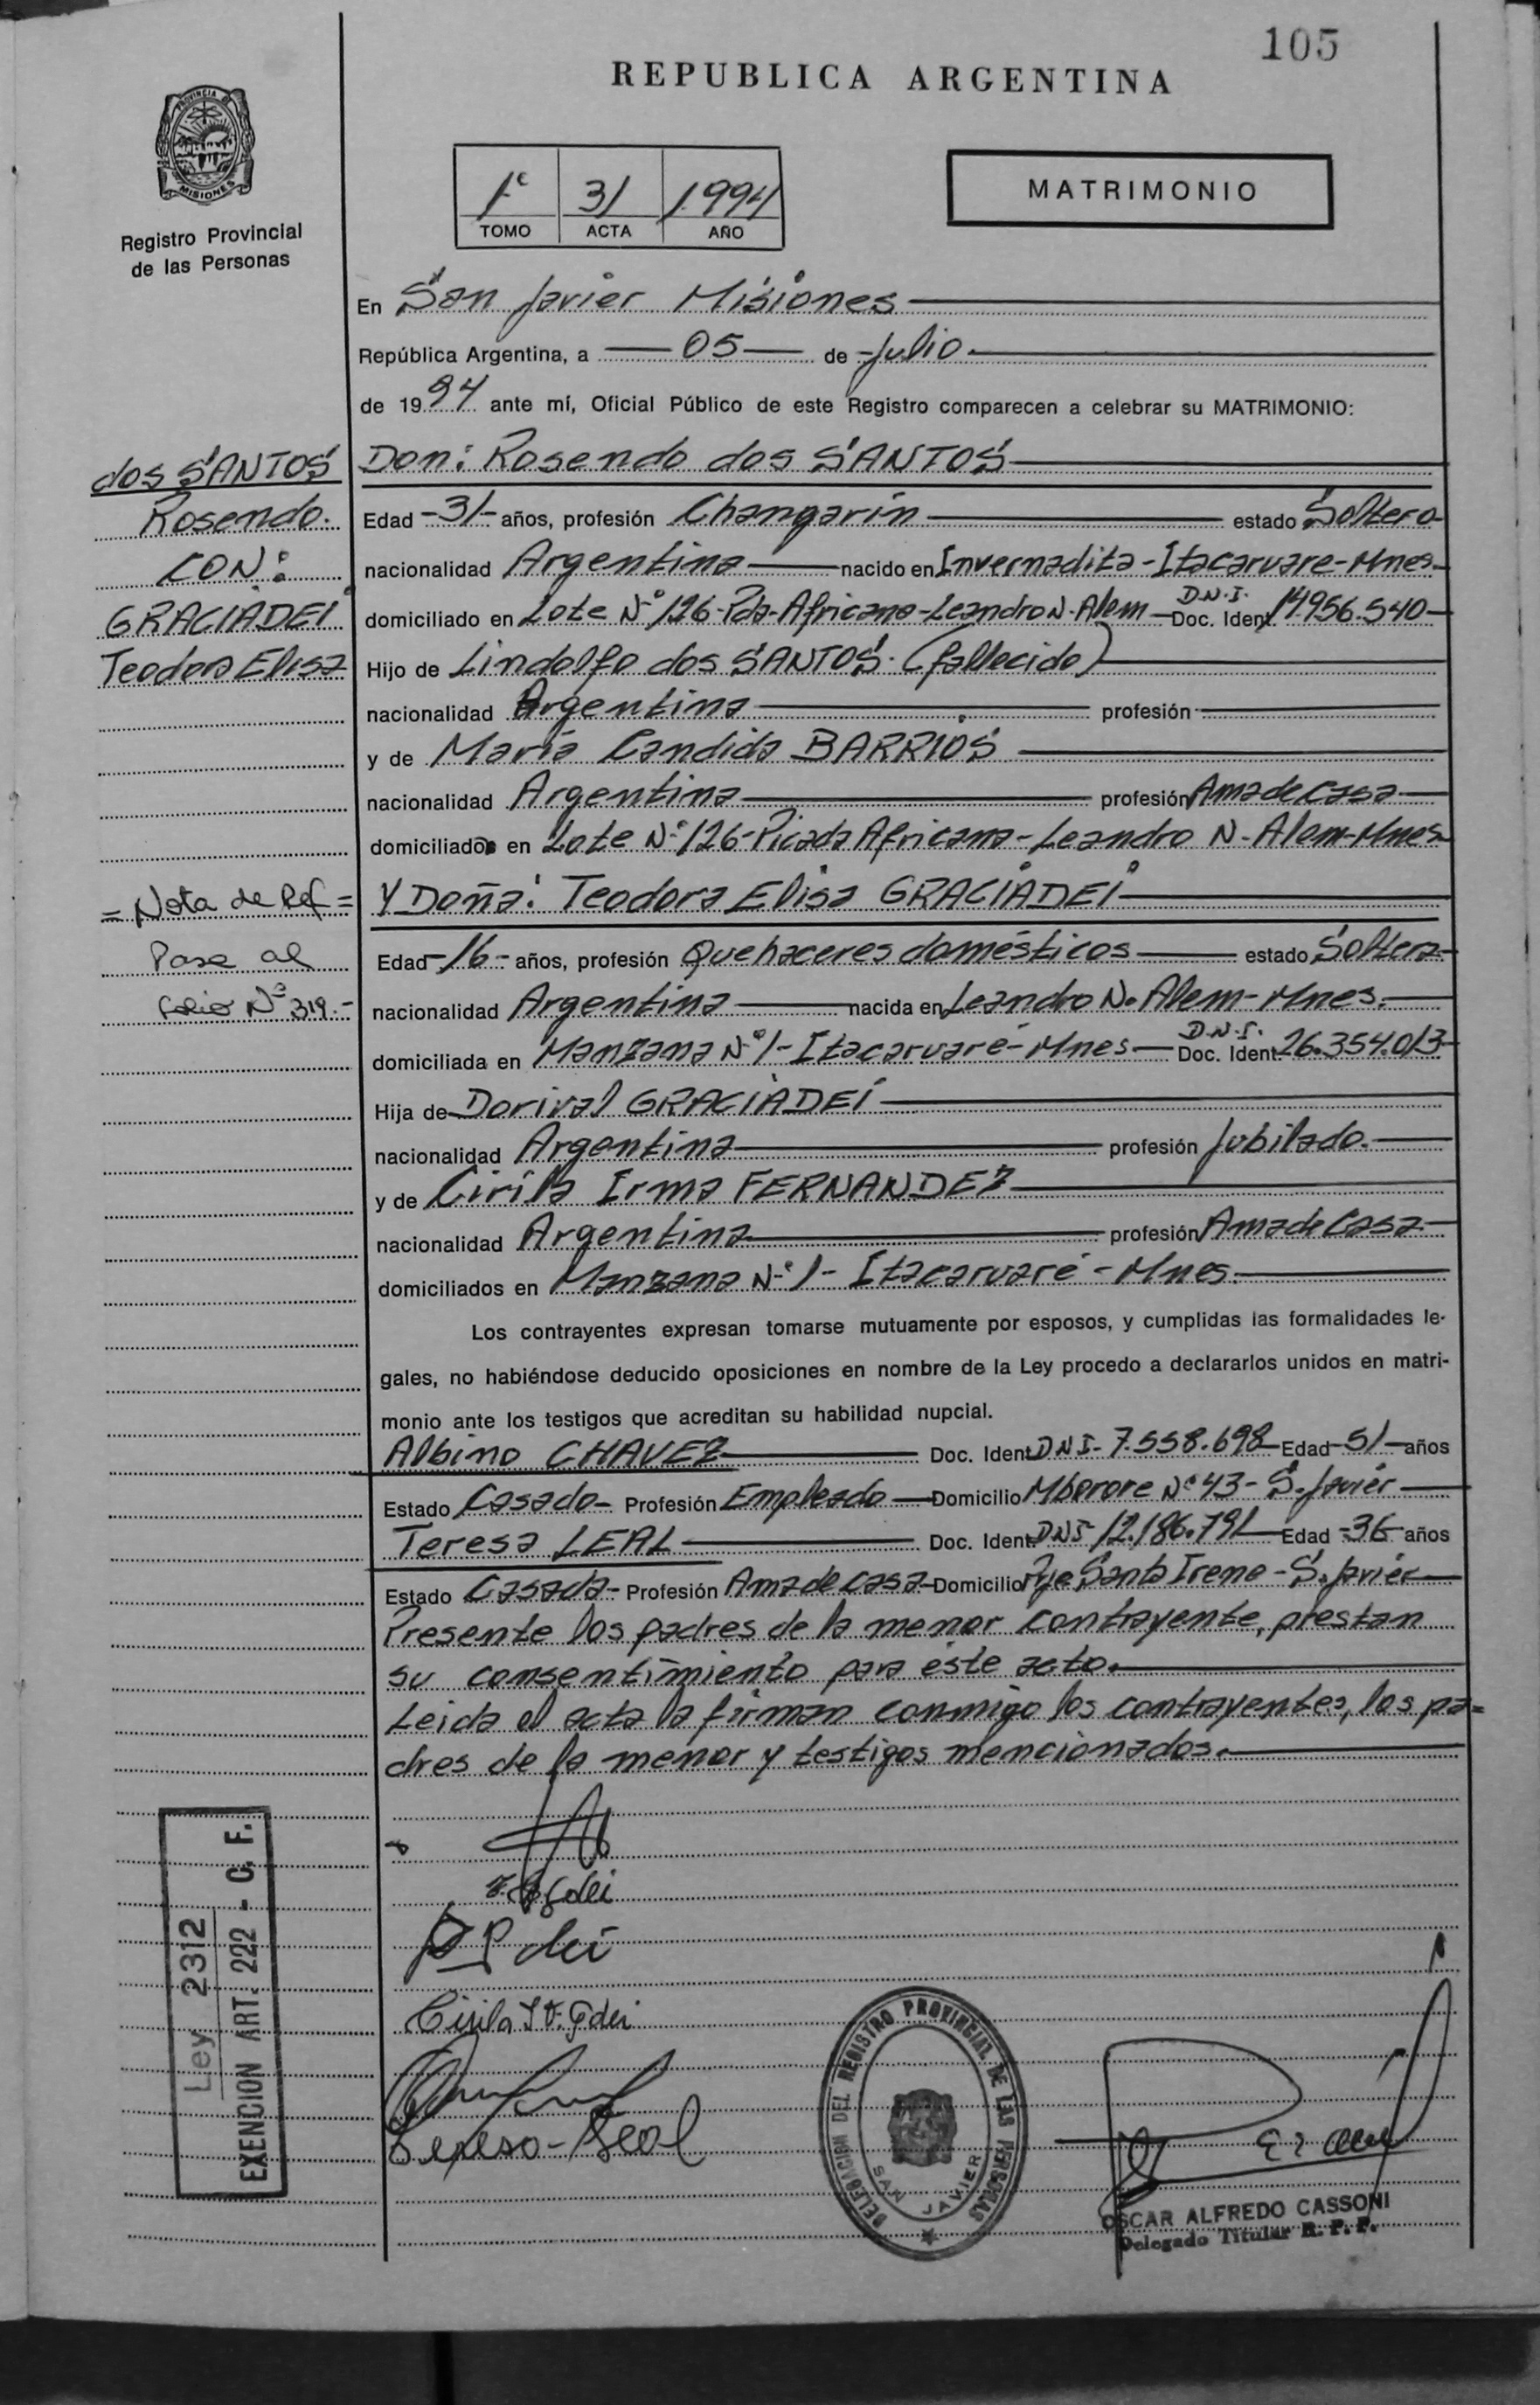 105
REPUBLICA ARGENTINA
PROVINCIA DE
MISIONES
Registro Provincial
de las Personas
1º 31 1994
TOMO ACTA AÑO
MATRIMONIO
En San Javier Misiones
República Argentina, a 05 de Julio
de 1994 ante mí, Oficial Público de este Registro comparecen a celebrar su MATRIMONIO:
dos SANTOS
Rosendo.
CON:
GRACIADEI
Teodora Elisa
Don: Rosendo dos SANTOS
Edad -31- años, profesión Changarín estado Soltero
nacionalidad Argentina nacido en Invernadita-Itacaruare-Mnes
domiciliado en Lote Nº 126-Pda-Africana-Leandro N. Alem D.N.I. Doc. Ident. 14.956.540
Hijo de Lindolfo dos SANTOS. (fallecido)
nacionalidad Argentina profesión
y de María Candida BARRIOS
nacionalidad Argentina profesión Ama de casa
domiciliados en Lote Nº 126-Picada Africana-Leandro N. Alem-Mnes
= Nota de Ref =
Pase al
Folio Nº 319.-
Y Doña: Teodora Elisa GRACIADEI
Edad -16- años, profesión Quehaceres domésticos estado Soltera
nacionalidad Argentina nacida en Leandro N. Alem-Mnes.
domiciliada en Manzana Nº 1-Itacaruaré-Mnes D.N.I. Doc. Ident. 26.354.013
Hija de Dorival GRACIADEI
nacionalidad Argentina profesión Jubilado.
y de Cirila Irma FERNANDEZ
nacionalidad Argentina profesión Ama de Casa
domiciliados en Manzana Nº 1-Itacaruaré-Mnes.
Los contrayentes expresan tomarse mutuamente por esposos, y cumplidas las formalidades le-
gales, no habiéndose deducido oposiciones en nombre de la Ley procedo a declararlos unidos en matri-
monio ante los testigos que acreditan su habilidad nupcial.
Albino CHAVEZ Doc. Ident. DNI-7.558.698 Edad 51 años
Estado Casado- Profesión Empleado Domicilio Mborore Nº 43-S. Javier
Teresa LEAL Doc. Ident. DNI-12.186.791 Edad 36 años
Estado Casada- Profesión Ama de casa Domicilio Pje Santa Irene-S. Javier
Presente los padres de la menor contrayente, prestan
su consentimiento para éste acto.
Leída el acta la firman conmigo los contrayentes, los pa=
dres de la menor y testigos mencionados.
Cirila I F. Gdei
Tereso-Leal
Ley 2312
EXENCION ART. 222 - C. F.
DELEGACION DEL REGISTRO PROVINCIAL DE LAS PERSONAS
SAN JAVIER
OSCAR ALFREDO CASSONI
Delegado Titular R. P. P.